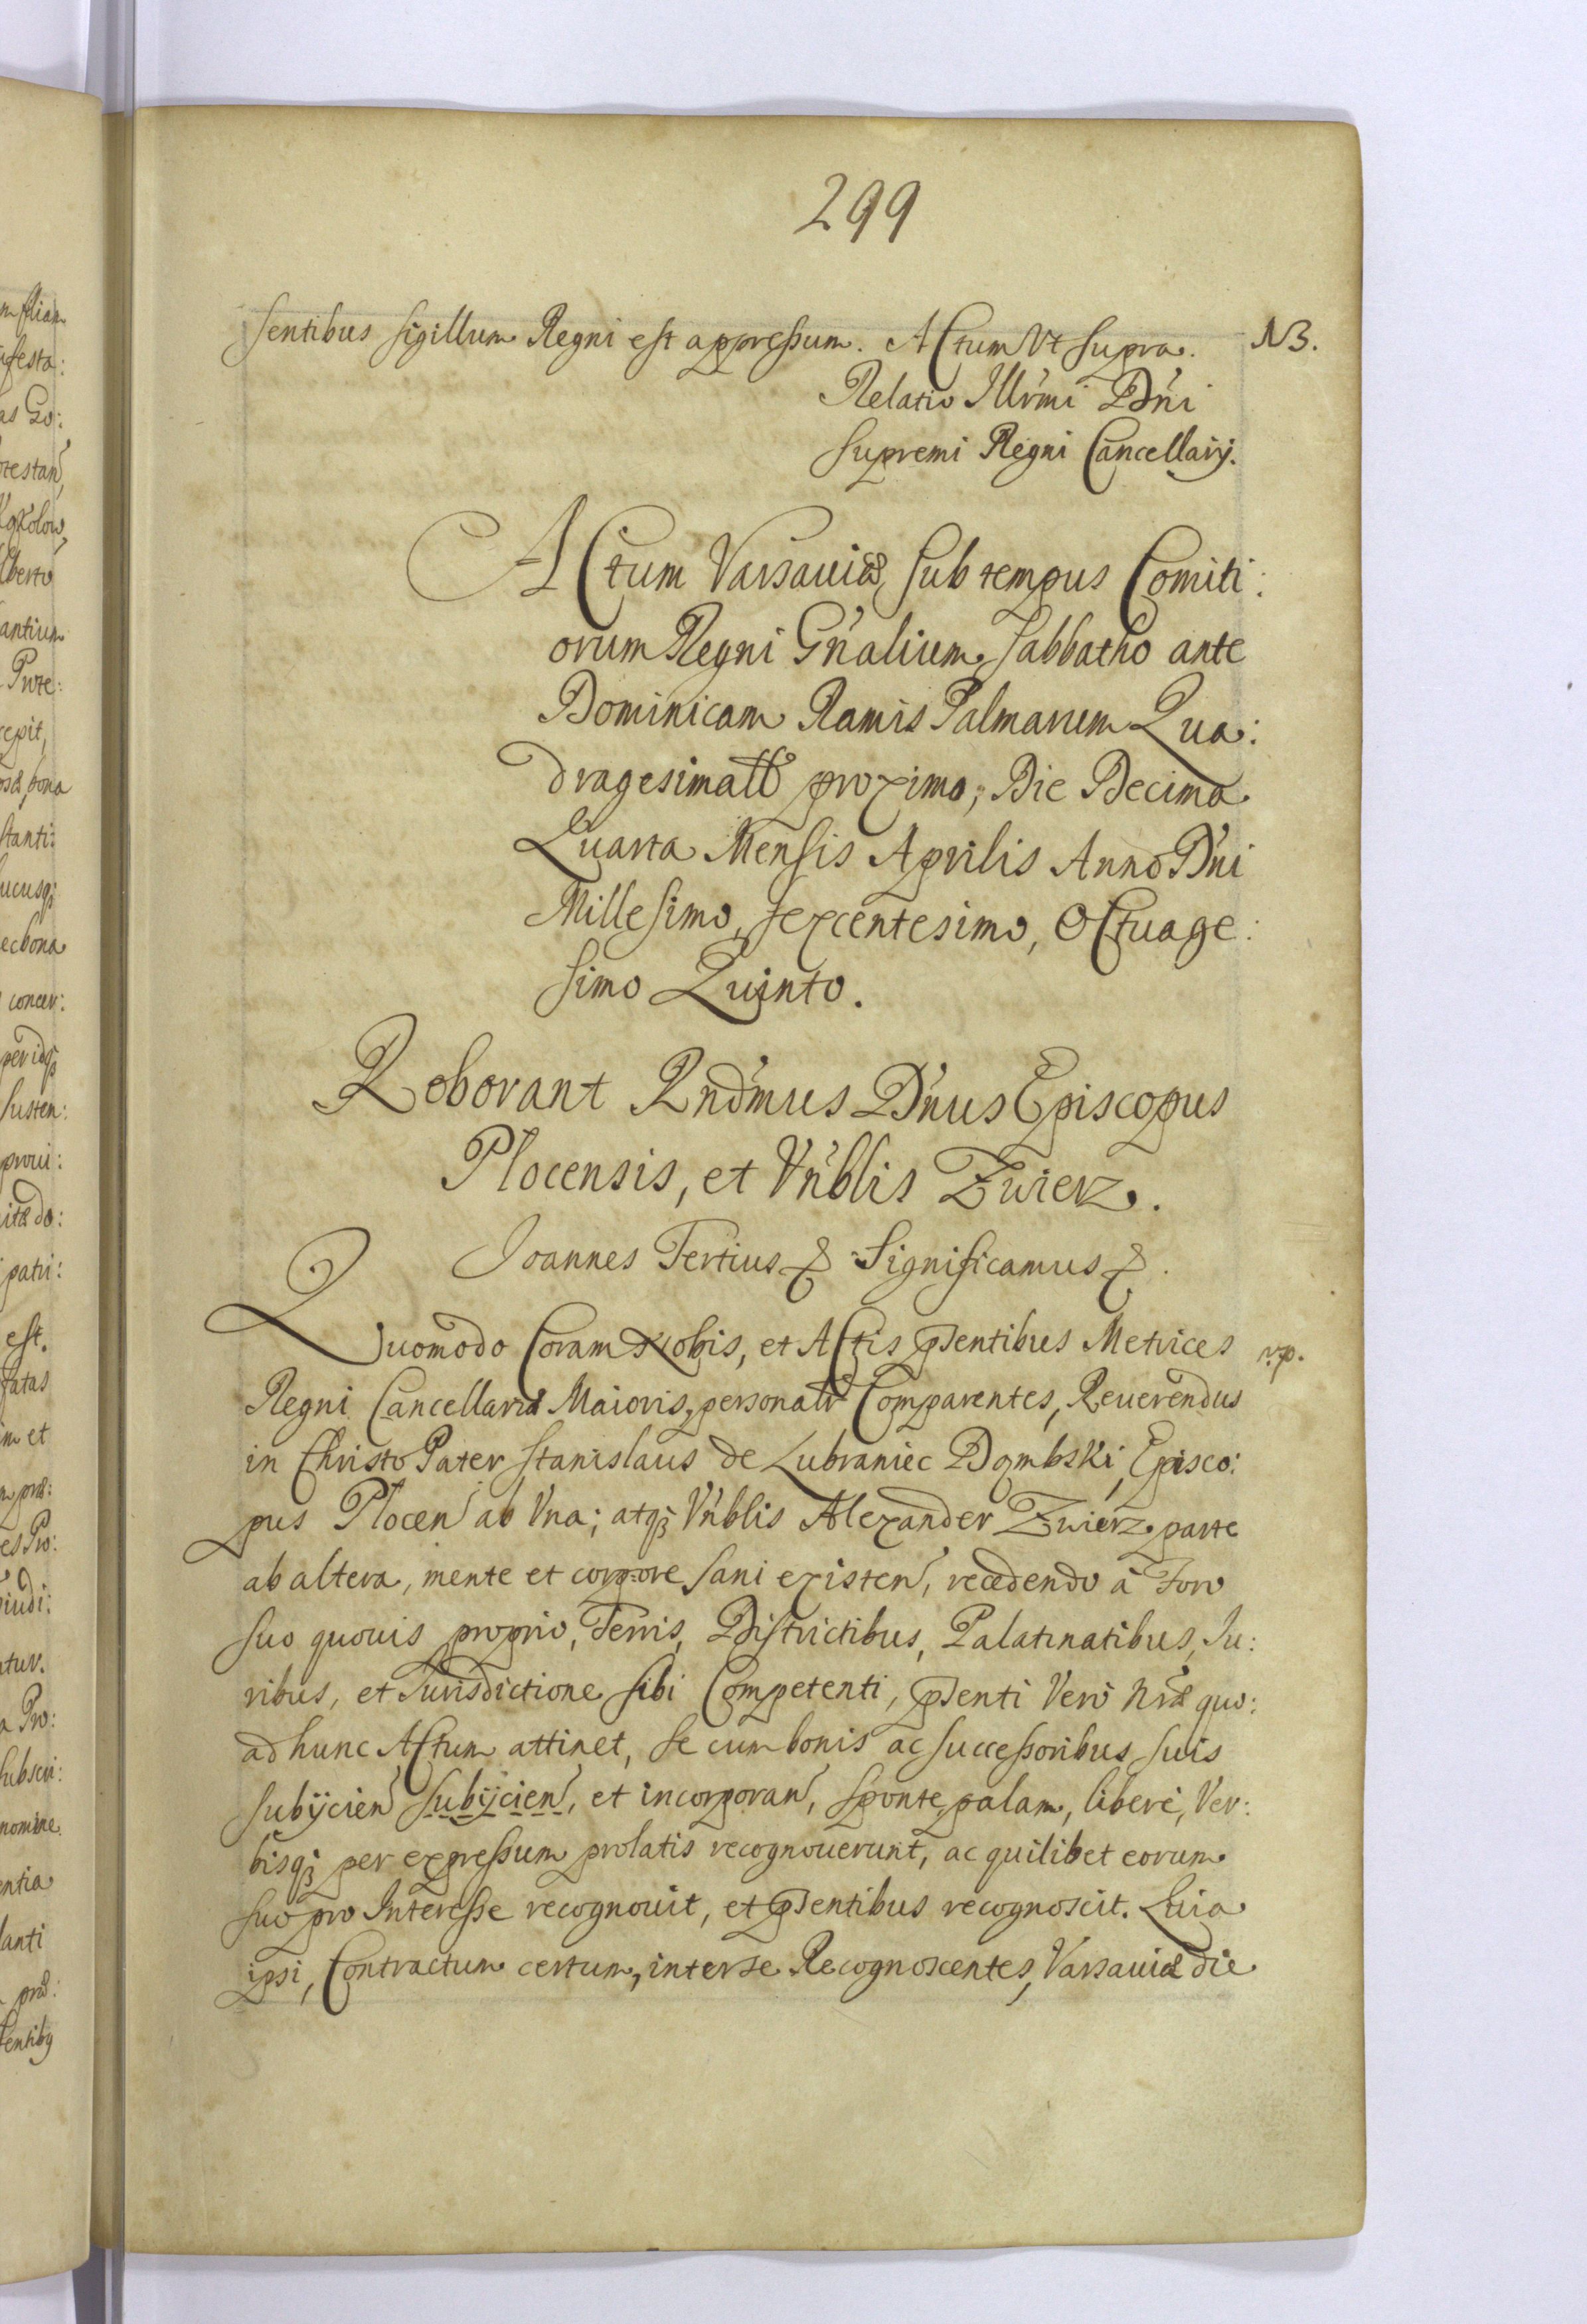 299
sentibus sigillum Regni est appressum. Actum Vt supra. NB.
Relatio Illr̃mi Dn̄i
Supremi Regni Cancellarij.
Actum Varsauiæ, sub tempus Comiti:
orum Regni Gn̄alium, Sabbatho ante
Dominicam Ramis Palmarum Qua:
dragesimali proximo, Die Decima
Quarta Mensis Aprilis Anno Dn̄i
Millesimo, sexcentesimo, Octuage:
simo Quinto.
Roborant Rnd̄mus Dn̄us Episcopus
Plocensis, et Vn̄blis Zwierz.
Joannes Tertius & Significamus &.
Quomodo Coram Nobis, et Actis pn̄sentibus Metrices v.p.
Regni Cancellariæ Maioris, personalr̃ Comparentes, Reuerendus
in Christo Pater Stanislaus de Lubraniec Dąmbski, Episco:
pus Plocen̄ ab Vna; atq3 Vn̄blis Alexander Zwierz, parte
ab altera, mente et corpore sani existen̄, recedendo à Foro
suo quouis proprio, Terris, Districtibus, Palatinatibus, Ju:
ribus, et Jurisdictione sibi Competenti, pn̄senti Verò nr̃æ quo:
ad hunc Actum attinet, se cum bonis ac successoribus suis
subÿcien̄ subÿcien̄, et incorporan̄, sponte, palam, liberè, Ver:
bisq3 per expressum prolatis recognouerunt, ac quilibet eorum
suo pro Interesse recognouit, et pn̄sentibus recognoscit. Quia
ipsi, Contractum certum, inter se Recognoscentes, Varsauiæ die
m filiam
ifesta:
as Go:
testan̄,
lberto
antium
Prote:
cepit,
osæ, bona
stanti:
ucusq3
ec bona
concer:
per idq3
susten:
proui:
itæ do:
patri:
est.
tatas
im et
m præ:
es Pro:
iudi:
tur.
a Pro:
subscri:
nomine
entia
lanti
præ:
sentibq